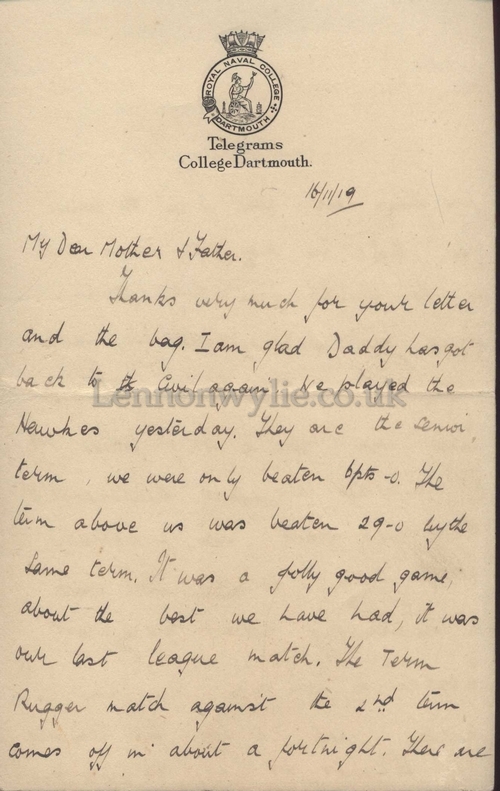 ROYAL NAVAL COLLEGE
DARTMOUTH
Telegrams
College Dartmouth.
16/11/19
My Dear Mother & Father.
Thanks very much for your letter
and the bag. I am glad Daddy has got
back to Civil again We played the
Lennonwylie.co.uk
Hawkes yesterday. They are the senior
term, we were only beaten 6pts-0. The
term above us was beaten 29-0 by the
same term. It was a jolly good game,
about the best we have had, it was
our last league match. The Term
Rugger match against the 2nd term
comes off in about a fortnight. There are